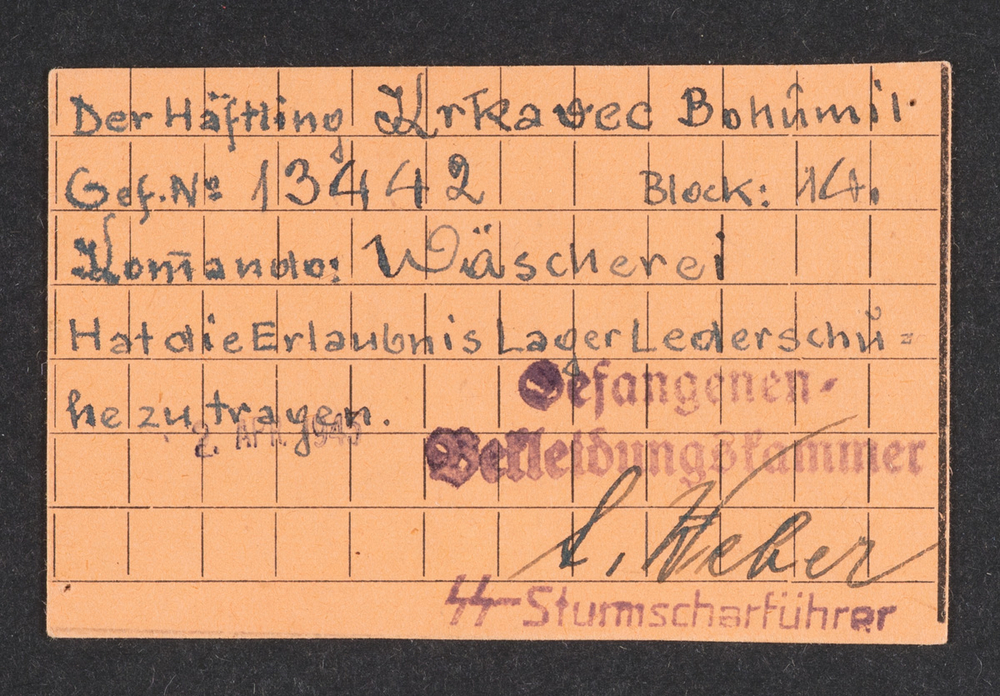 Der Häftling Krkavec Bohumil.
Gef. Nº 13442 Block: 14.
Kom̄ando: Wäscherei
Hat die Erlaubnis Lager Lederschu=
he zu tragen.
Gefangenen-
2. APR. 1943
Bekleidungskammer
Weber
SS-Sturmscharführer